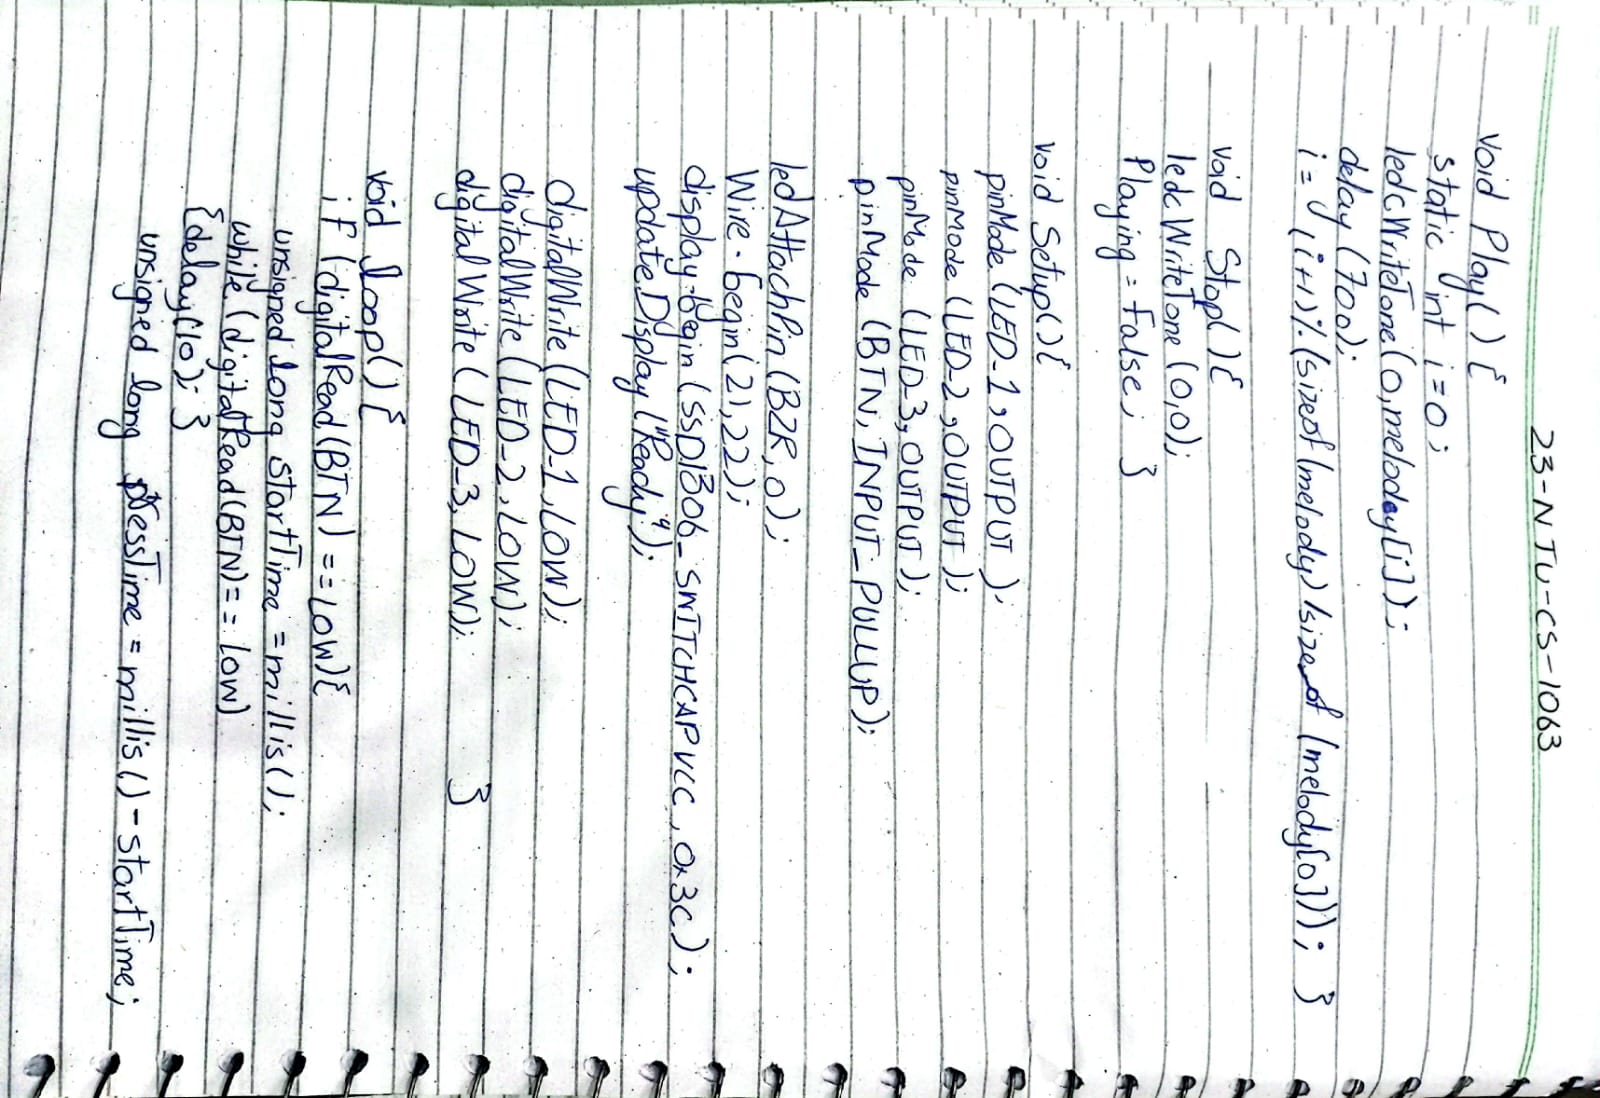 23-NTU-CS-1063
void Play() {
static int i=0;
ledcWriteTone(0,meloday[i]);
delay(700);
i = (i+1)%(sizeof(melody)/sizeof(melody[0])); }
void Stop(){
ledcWriteTone(0,0);
Playing = False; }
void Setup(){
pinMode(LED-1,OUTPUT);
pinMode(LED-2,OUTPUT);
pinMode(LED-3,OUTPUT);
pinMode(BTN,INPUT_PULLUP);
ledAttachPin(BZR,0);
Wire.begin(21,22);
display.begin(SSD1306_SWITCHCAPVCC,0x3C);
updateDisplay("Ready");
digitalWrite(LED-1,LOW);
digitalWrite(LED-2,LOW);
digitalWrite(LED-3,LOW); }
void loop(){
if(digitalRead(BTN)==LOW){
unsigned long startTime=millis();
while(digitalRead(BTN)==LOW)
{delay(10);}
unsigned long pressTime=millis()-startTime;